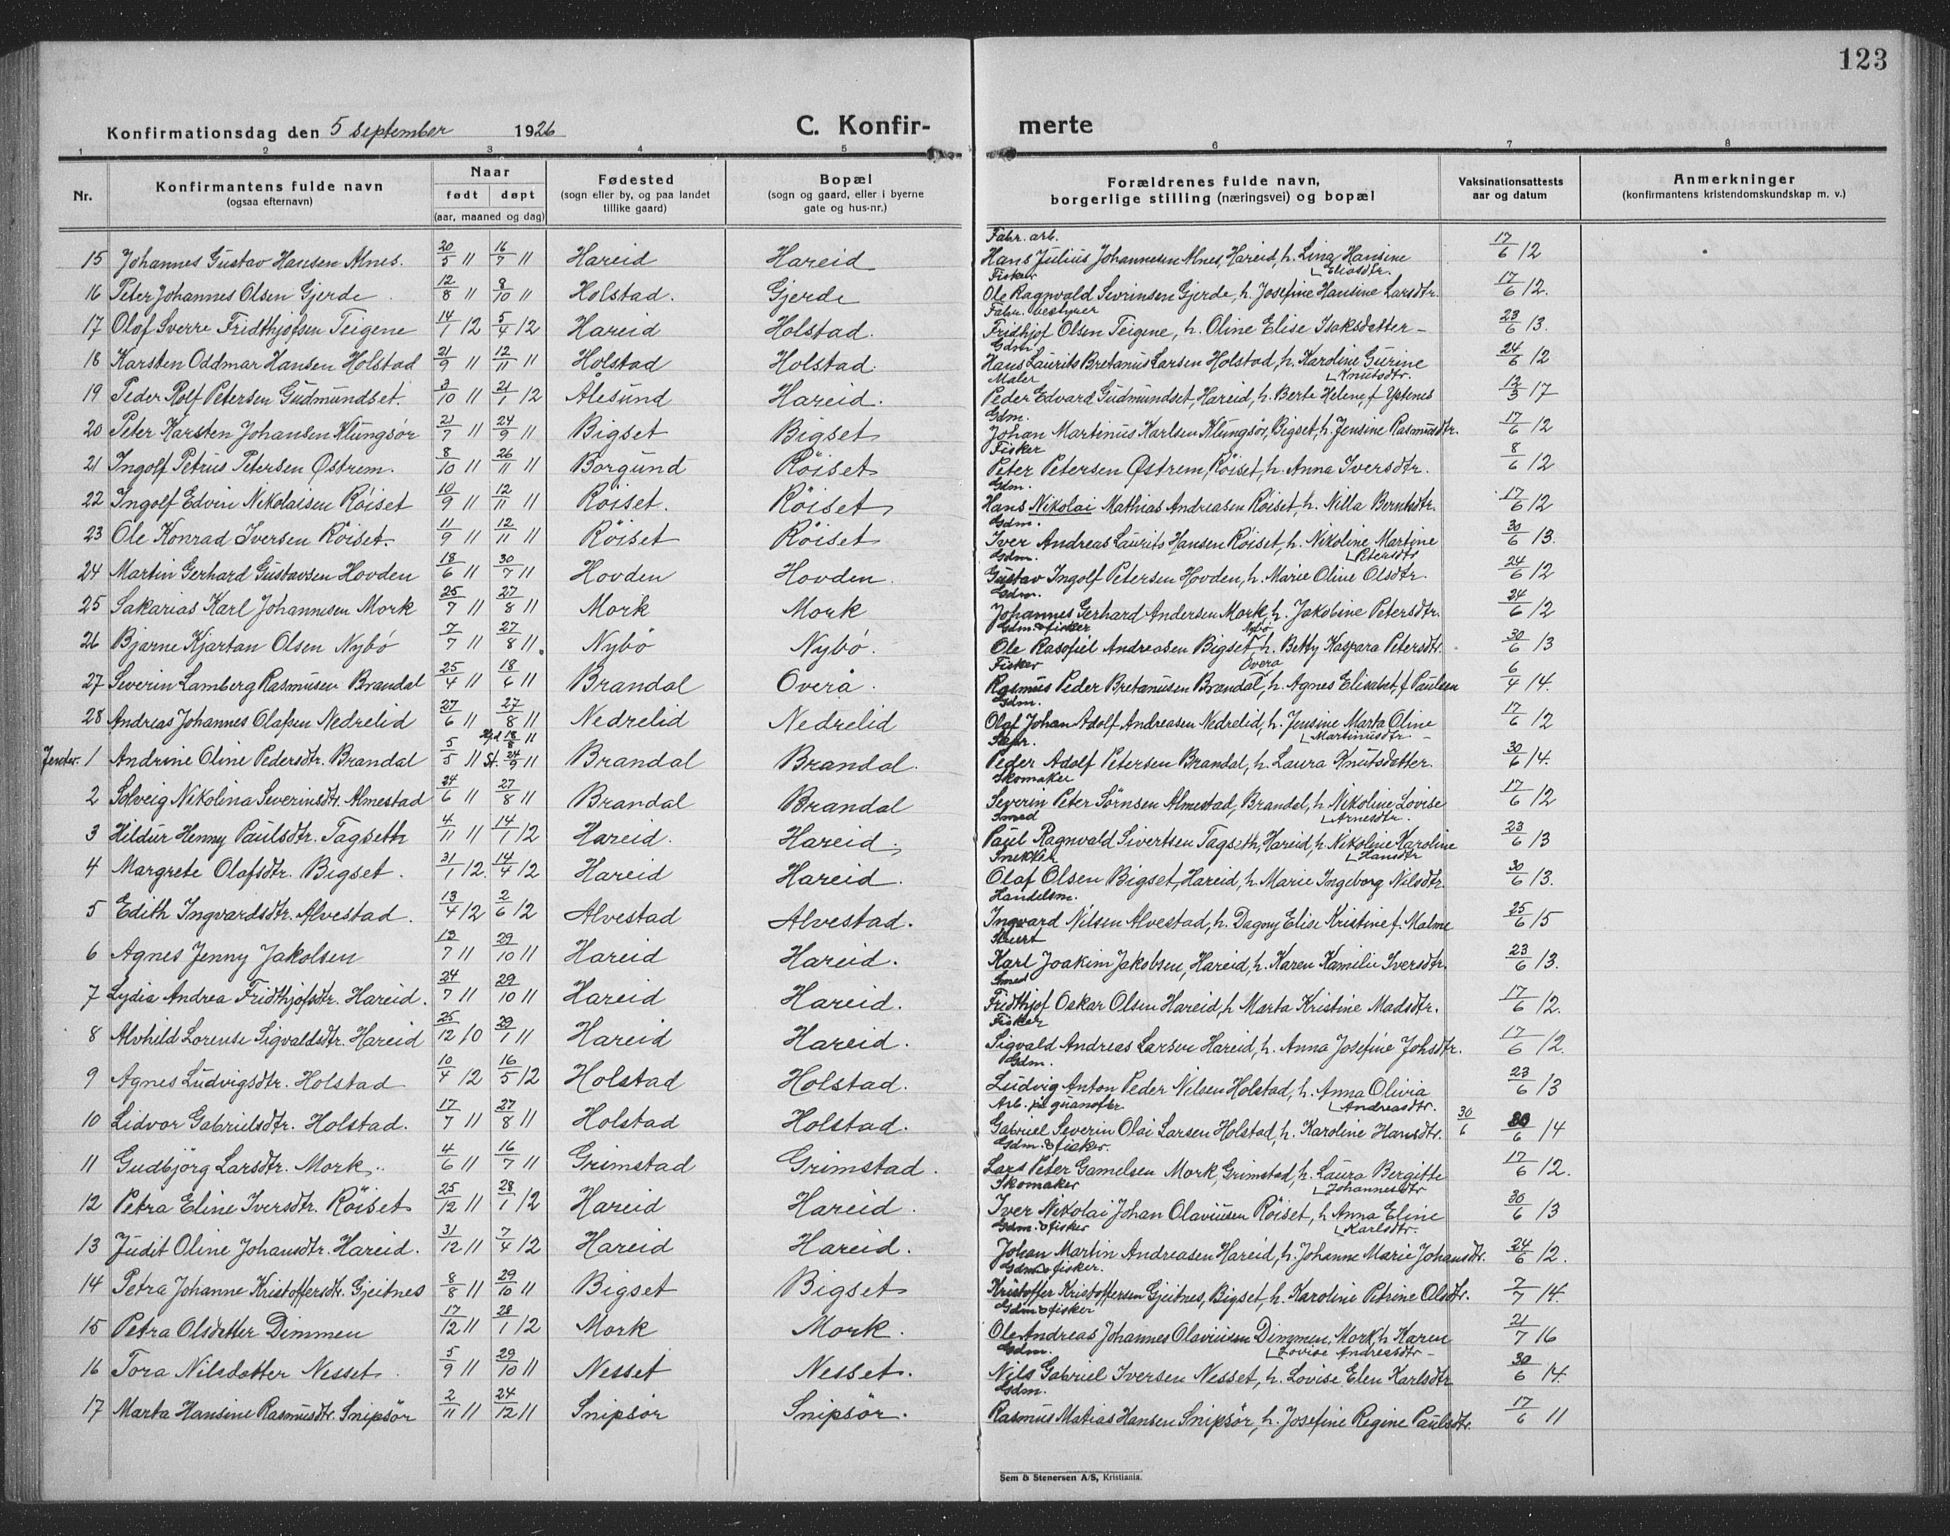 123
Konfirmationsdag den 5 September 1926
C. Konfir- merte
1 2 3 4 5 6 7 8
Nr.
Konfirmantens fulde navn
(ogsaa efternavn)
Naar
født døpt
(aar, maaned og dag)
Fødested
(sogn eller by, og paa landet
tillike gaard)
Bopæl
(sogn og gaard, eller i byerne
gate og hus-nr.)
Forældrenes fulde navn,
borgerlige stilling (næringsvei) og bopæl
Vaksinationsattests
aar og datum
Anmerkninger
(konfirmantens kristendomskundskap m. v.)
Fabr. arb.
15 Johannes Gustav Hansen Alnes. 20/5 11 16/7 11 Hareid Hareid Hans Julius Johannesen Alnes, Hareid, h. Lina Hansine 17/6 12
Eliasdtr.
Fisker
16 Peter Johannes Olsen Gjerde 12/8 11 8/10 11 Holstad. Gjerde Ole Ragnvald Sevrinsen Gjerde, h. Josefine Hansine Larsdtr. 17/6 12.
Fabr. bestyrer
17 Olaf Sverre Fridthjofsen Teigene 14/1 12 5/4 12 Hareid Holstad. Fridhjof Olsen Teigene, h. Oline Elise Isaksdatter - 23/6 13.
Gdm.
18 Karsten Oddmar Hansen Holstad 21/9 11 12/11 11 Holstad Holstad. Hans Laurits Bretanus Larsen Holstad, h. Karoline Gurine 24/6 12
Knutsdtr.
Maler
19 Peder Rolf Petersen Gudmundset. 3/10 11 21/1 12 Alesund Hareid. Peder Edvard Gudmundset, Hareid, h. Berte Helene, f Ystenes 12/3 17
Gdm.
20 Peter Karsten Johansen Klungsör 21/7 11 24/9 11 Bigset Bigset Johan Martinus Karlsen Klungsör, Bigset, h. Jensine Rasmusdtr. 17/6 12
Fisker
21 Ingolf Petrus Petersen Østrem. 8/10 11 26/11 11 Borgund Röiset Peter Petersen Østrem, Röiset, h. Anna Iversdtr. 8/6 12
Gdm.
22 Ingolf Edvin Nikolaisen Röiset 10/9 11 12/11 11 Röiset. Röiset Hans Nikolai Mathias Andreasen Röiset, h. Nilla Berntsdtr. 17/6 12
Gdm.
23 Ole Konrad Iversen Röiset. 11/9 11 12/11 11 Röiset Röiset Iver Andreas Laurits Hansen Röiset, h. Nikoline Martine 30/6 13.
Petersdtr
Gdm.
24 Martin Gerhard Gustavsen Hovden 18/6 11 30/7 11 Hovden Hovden. Gustav Ingolf Petersen Hovden, h. Marie Oline Olsdtr. 24/6 12
Gdm.
25 Sakarias Karl Johannesen Mork 25/7 11 27/8 11 Mork Mork Johannes Gerhard Andersen Mork, h. Jakobine Petersdtr. 24/6 12
Gdm. & fisker Nybö
26 Bjarne Kjartan Olsen Nybö 7/7 11 27/8 11 Nybö Nybö. Ole Rasofiel Andreasen Bigset, h. Betty Kaspara Petersdtr. 30/6 13
Fisker Overa
27 Severin Lamberg Rasmusen Brandal 25/4 11 18/6 11 Brandal Overå. Rasmus Peder Bretanusen Brandal, h. Agnes Elisabet, f Paulsen 6/4 14.
Gdm.
28 Andreas Johannes Olafsen Nedrelid 27/6 11 27/8 11 Nedrelid Nedrelid Olaf Johan Adolf Andreasen Nedrelid, h. Jensine Marta Oline 17/6 12
Martinusdtr -
Jenter. 1 Andrine Oline Pedersdtr. Brandal 5/5 11 18/8 11 St. 24/9 11 Brandal Brandal. Peder Adolf Petersen Brandal, h. Laura Knutsdatter. 30/6 14.
Skomaker
2 Solveig Nikolina Severinsdtr. Almestad 24/6 11 27/8 11 Brandal Brandal Severin Peter Sørnsen Almestad, Brandal, h. Nikoline Lovise 17/6 12
Arnesdtr.
Smed
3 Hildur Henny Paulsdtr. Tagseth 4/11 11 14/1 12 Hareid. Hareid. Paul Ragnvald Sivertsen Tagseth, Hareid, h. Nikoline Karoline 23/6 13
Hansdtr
Snekker
4 Margrete Olafsdtr. Bigset. 31/1 12. 14/4 12 Hareid Hareid. Olaf Olsen Bigset, Hareid, h. Marie Ingeborg Nilsdtr. 30/6 13.
Handelsm.
5 Edith Ingvardsdtr. Alvestad. 13/4 12 2/6 12 Alvestad Alvestad. Ingvard Nilsen Alvestad, h. Dagny Elise Kristine f. Malme 25/6 15
6 Agnes Jenny Jakobsen 12/7 11 29/10 11 Hareid Hareid. Karl Joakim Jakobsen, Hareid, h. Karen Kamilie Iversdtr. 23/6 13.
Smed
7 Lydia Andrea Fridthjofsdtr. Hareid. 24/7 11 29/10 11 Hareid Hareid. Fridthjof Oskar Olsen Hareid, h. Marta Kristine Madsdtr. 17/6 12.
Fisker
8 Alvhild Lorense Sigvaldsdtr. Hareid 25/12 10 29/1 11 Hareid Hareid. Sigvald Andreas Larsen Hareid, h. Anna Josefine Johsdtr. 17/6 12.
Gdm.
9 Agnes Ludvigsdtr. Holstad 10/4 12 16/5 12 Holstad Holstad. Ludvig Anton Peder Nilsen Holstad, h. Anna Olivia 23/6 13
Andreasdtr.
Arb. på guanofer
10 Lidvor Gabrielsdtr. Holstad. 17/7 11 27/8 11 Holstad Holstad. Gabriel Severin Olai Larsen Holstad, h. Karoline Hansdtr. 30/6 30/6 14
Gdm. & fisker.
11 Gudbjörg Larsdtr. Mork. 4/6 11 16/7 11 Grimstad Grimstad. Lars Peter Gamelsen Mork, Grimstad, h. Laura Bergitte 17/6 12.
Johannesdtr
Skomaker
12 Petra Eline Iversdtr. Röiset 25/12 11 28/1 12 Hareid Hareid. Iver Nikolai Johan Olaviusen Röiset, h. Anna Eline 30/6 13
Karlsdtr.
Gdm. & fisker
13 Judit Oline Johansdtr. Hareid. 31/12 11 7/4 12 Hareid Hareid. Johan Martin Andreasen Hareid, h. Johanne Marie Johansdtr. 24/6 12.
Gdm & fisker.
14 Petra Johanne Kristoffersdtr. Gjeitnes 8/8 11 29/10 11 Bigset Bigset Kristoffer Kristoffersen Gjeitnes, Bigset, h. Karoline Petrine Olsdtr. 7/7 14.
Gdm & fisker
15 Petra Olsdatter Dimmen 17/12 11 28/1 12 Mork Mork. Ole Andreas Johannes Olaviusen Dimmen, Mork, h. Karen 21/7 16
Lovise Andreasdtr -
Gdm.
16 Tora Nilsdatter Nesset. 5/9 11 29/10 11 Nesset Nesset. Nils Gabriel Iversen Nesset, h. Lovise Elen Karlsdtr 30/6 14.
Gdm.
17 Marta Hansine Rasmusdtr. Snipsör 2/11 11 24/12 11 Snipsör Snipsör. Rasmus Matias Hansen Snipsör, h. Josefine Regine Paulsdtr. 17/6 11
Sem & Stenersen A/S, Kristiania.